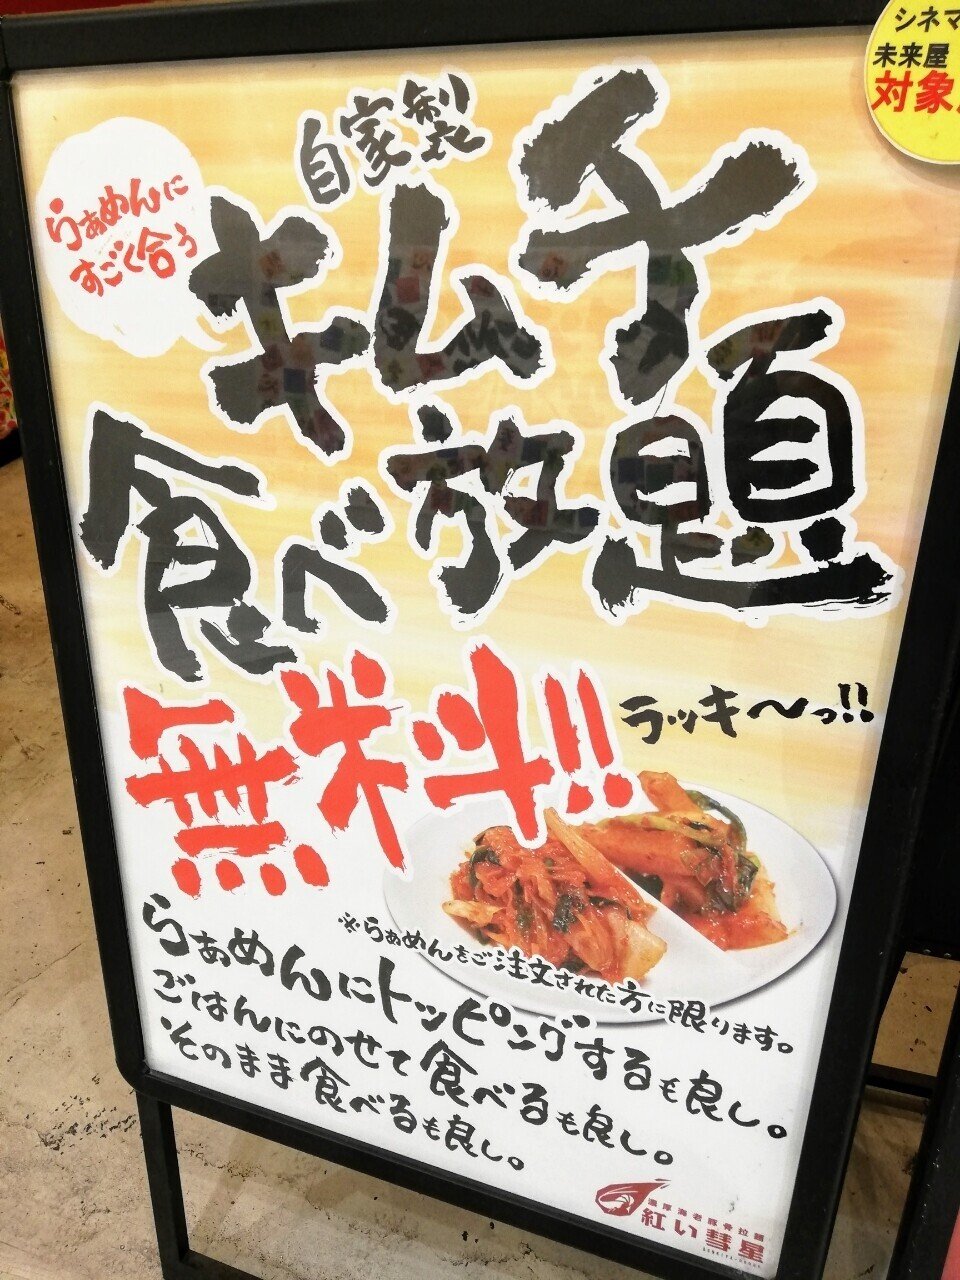 シネマ
未来屋
対象
らぁめんに
すごく合う
自家製
キムチ
食べ放題
無料!!
ラッキ〜っ!!
※らぁめんをご注文された方に限ります。
らぁめんにトッピングするも良し。
ごはんにのせて食べるも良し。
そのまま食べるも良し。
濃厚海老豚骨拉麺
紅い彗星